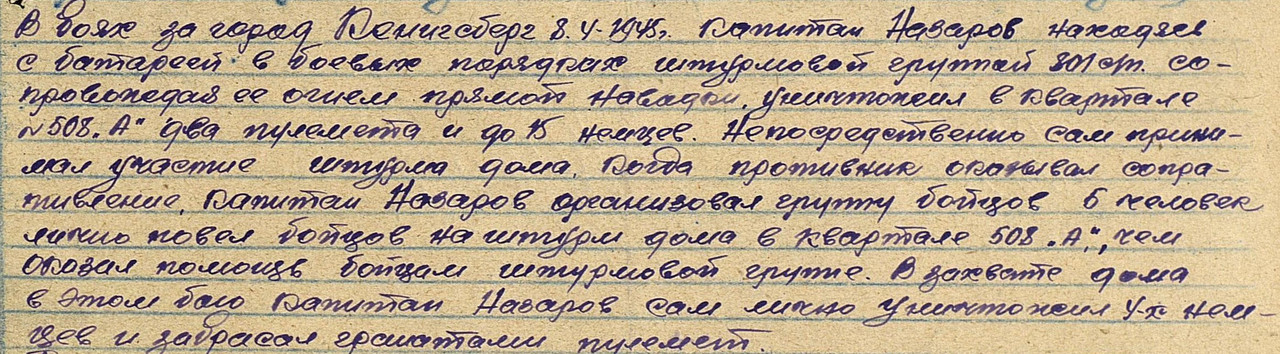 В боях за город Кенигсберг 8.4-1945г. Капитан Назаров находясь
с батареей в боевых порядках штурмовой группой 801 с/п. со-
провождая ее огнем прямой наводки, уничтожил в квартале
№508 „А" два пулемета и до 15 немцев. Непосредственно сам прини-
мал участие штурма дома, когда противник оказывал сопра-
тивление, Капитан Назаров организовал группу бойцов 6 человек
лично повел бойцов на штурм дома в квартале 508 „А", чем
оказал помощь бойцам штурмовой групе. В захвате дома
в этом бою Капитан Назаров сам лично уничтожил 4-х нем-
цев и забрасал гранатами пулемет.